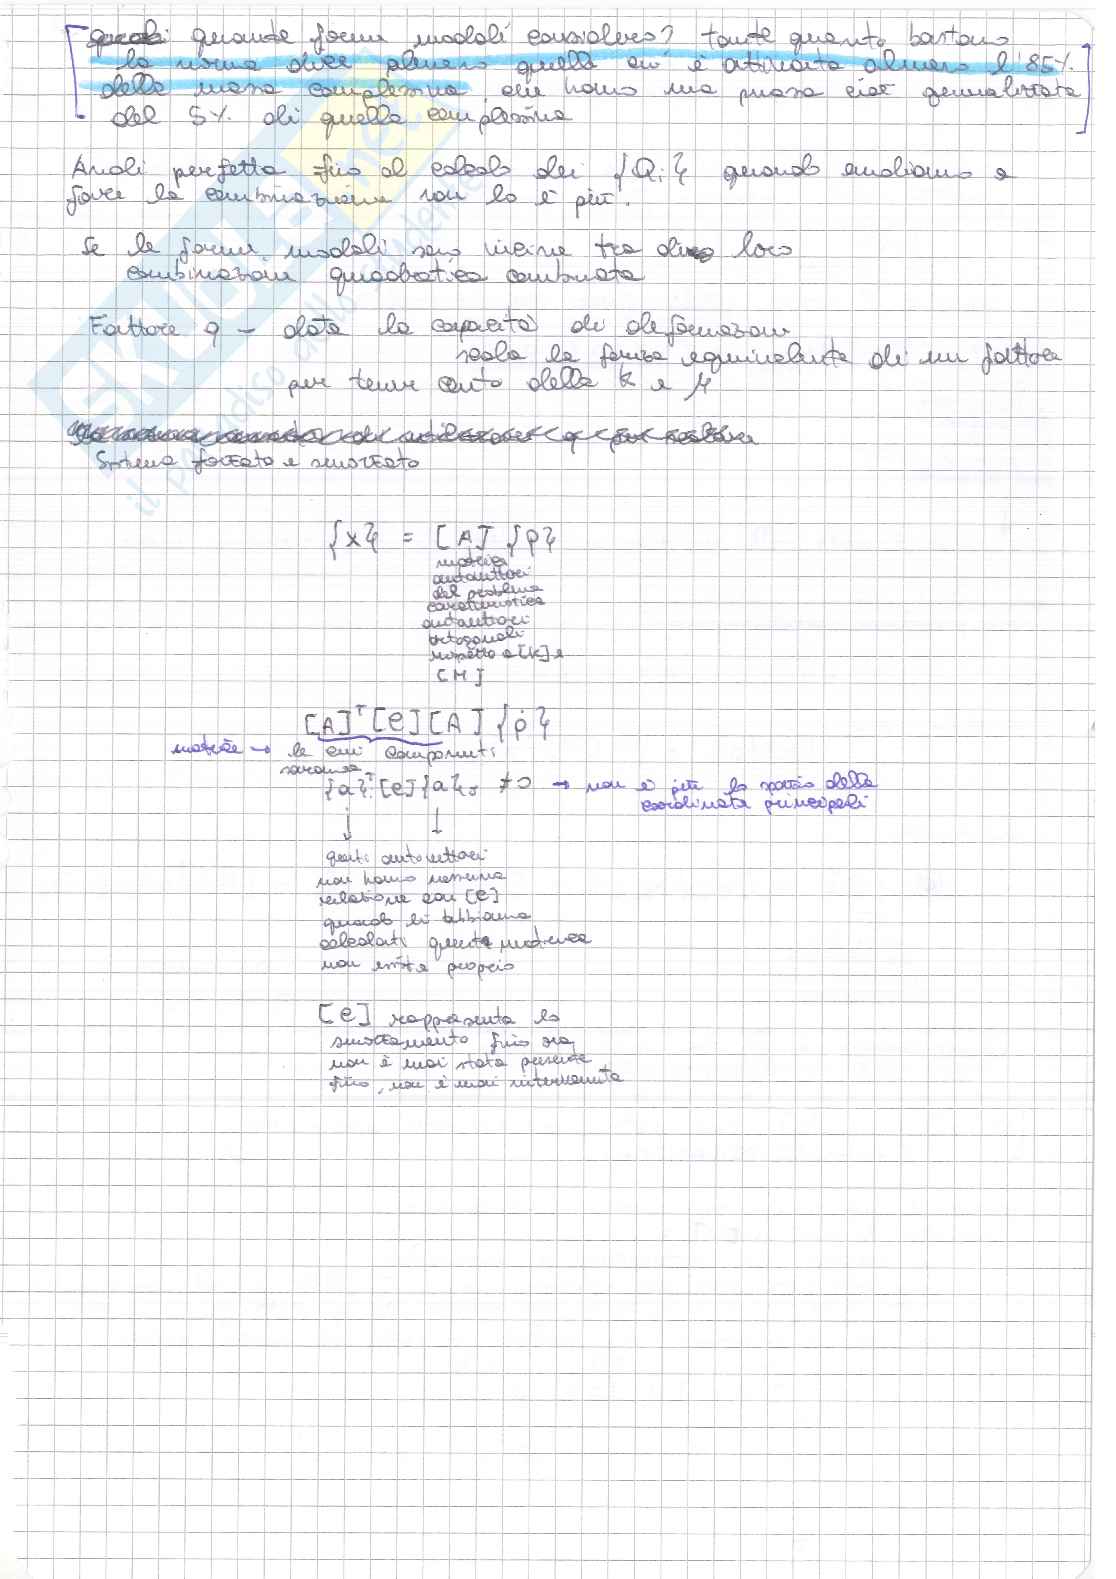 quante forme modali considero? tante quanto bastano
la norma dice almeno quelle cui è attivata almeno l'85%
della massa complessiva, che hanno una massa generalizzata
del 5% di quella complessiva
Analisi perfetta fino al calcolo dei {Qi} quando andiamo a
fare la combinazione non lo è più.
Se le forme modali sono vicine tra di loro
combinazione quadratica combinata
Fattore q - data la capacità di deformazione
scala la forza equivalente di un fattore
per tener conto della K e μ
Sistema forzato e smorzato
{x} = [A] {p}
matrice
autovettori
del problema
caratteristico
autovettori
ortogonali
rispetto a [K] e
[M]
[A]ᵀ [C] [A] {ṗ}
matrice → le cui componenti
saranno
{a}ᵢᵀ [C] {a}ⱼ ≠ 0 → non è più lo spazio delle
coordinate principali
questi autovettori
non hanno nessuna
relazione con [C]
quando li abbiamo
calcolati questa matrice
non esiste proprio
[C] rappresenta lo
smorzamento fino ora
non è mai stata presente
non è mai intervenuta
EXULE.net
il paradiso dello studente